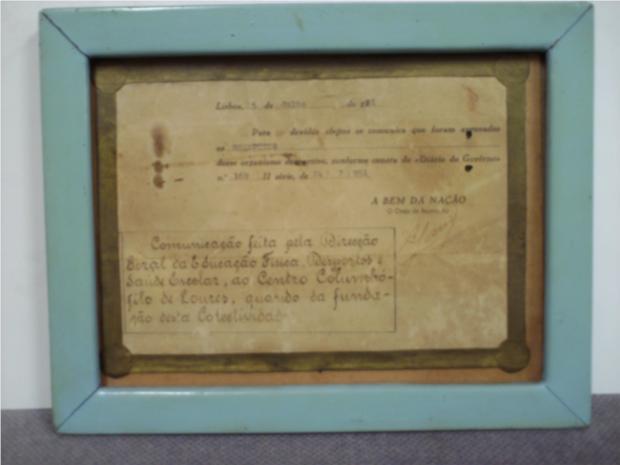 Lisboa, 5 de de 951
Para devidos efeitos se comunica que foram aprovados
os
desse organismo desportivo, conforme consta do «Diário do Governo»
n.º 169 II série, de 24 7 951
A BEM DA NAÇÃO
O
Comunicação feita pela Direcção
Geral da Educação Fisica, Desportos e
Saude Escolar, ao Centro Columbó-
filo de Loures, quando da funda-
ção desta Colectividade